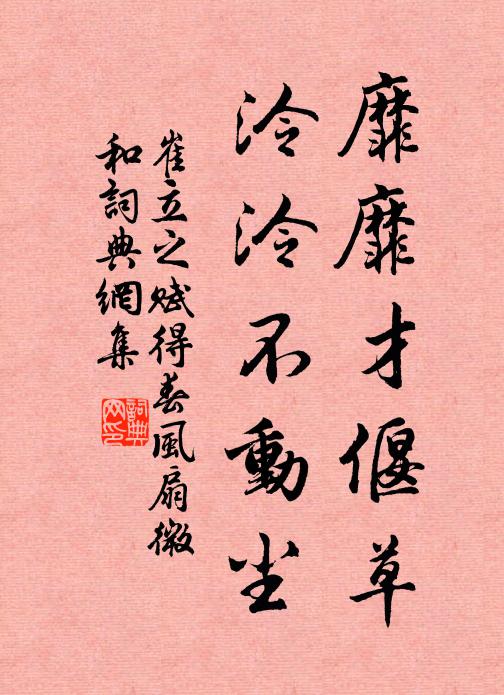 靡靡才偃草
泠泠不動尘
崔立之賦得春風扇微
和詞典網集
詞典
网印